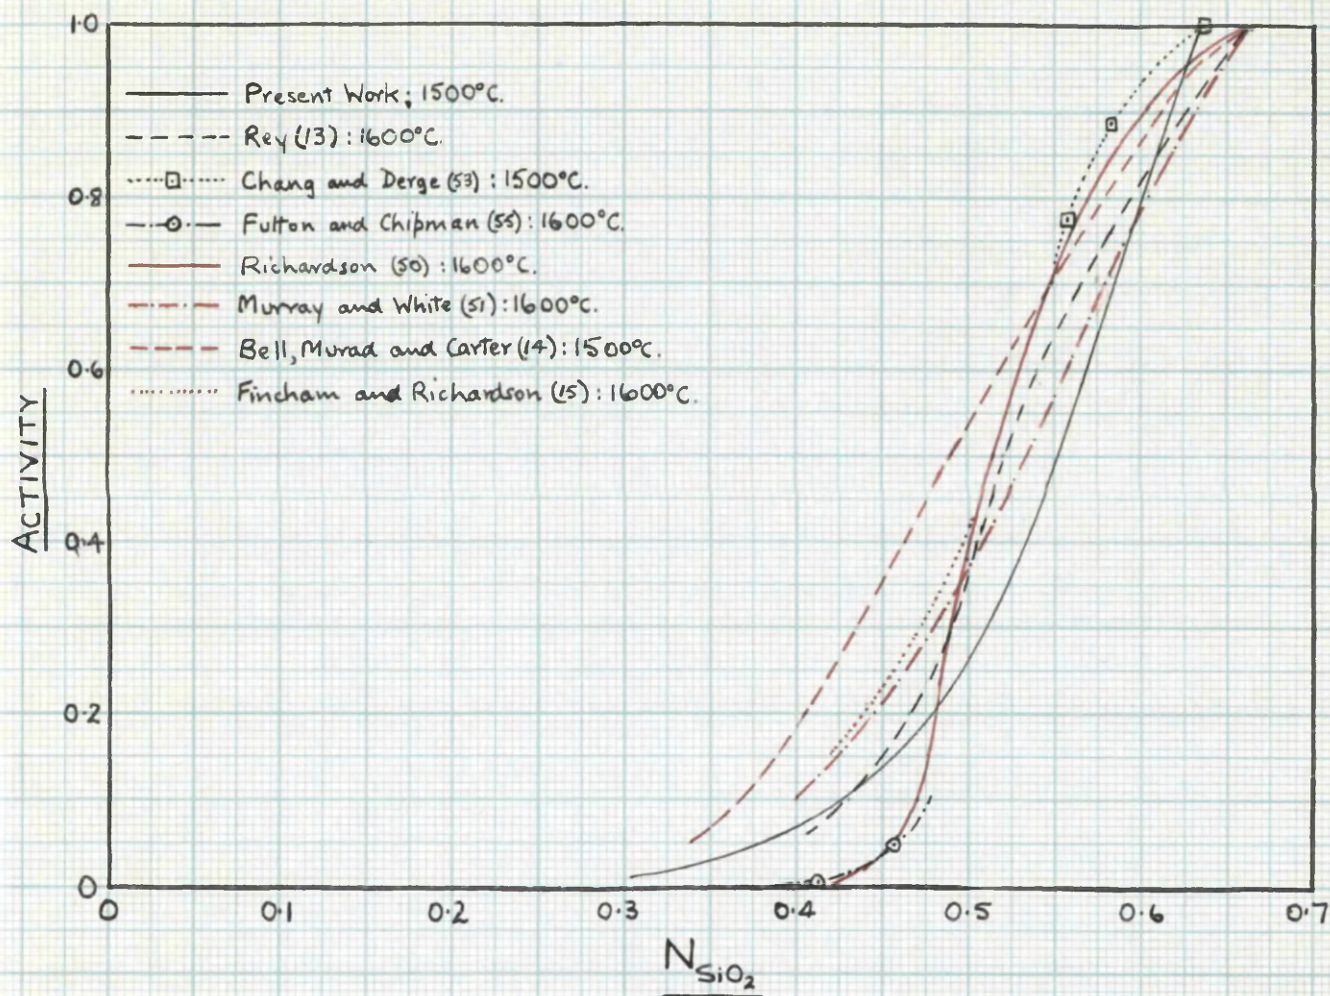 1·0
Present Work; 1500°C.
Rey (13) : 1600°C.
Chang and Derge (53) : 1500°C.
0·8
Fulton and Chipman (55) : 1600°C.
Richardson (50) : 1600°C.
Murray and White (51) : 1600°C.
Bell, Murad and Carter (14) : 1500°C.
0·6
Fincham and Richardson (15) : 1600°C.
ACTIVITY
0·4
0·2
0
0 0·1 0·2 0·3 0·4 0·5 0·6 0·7
N SiO2